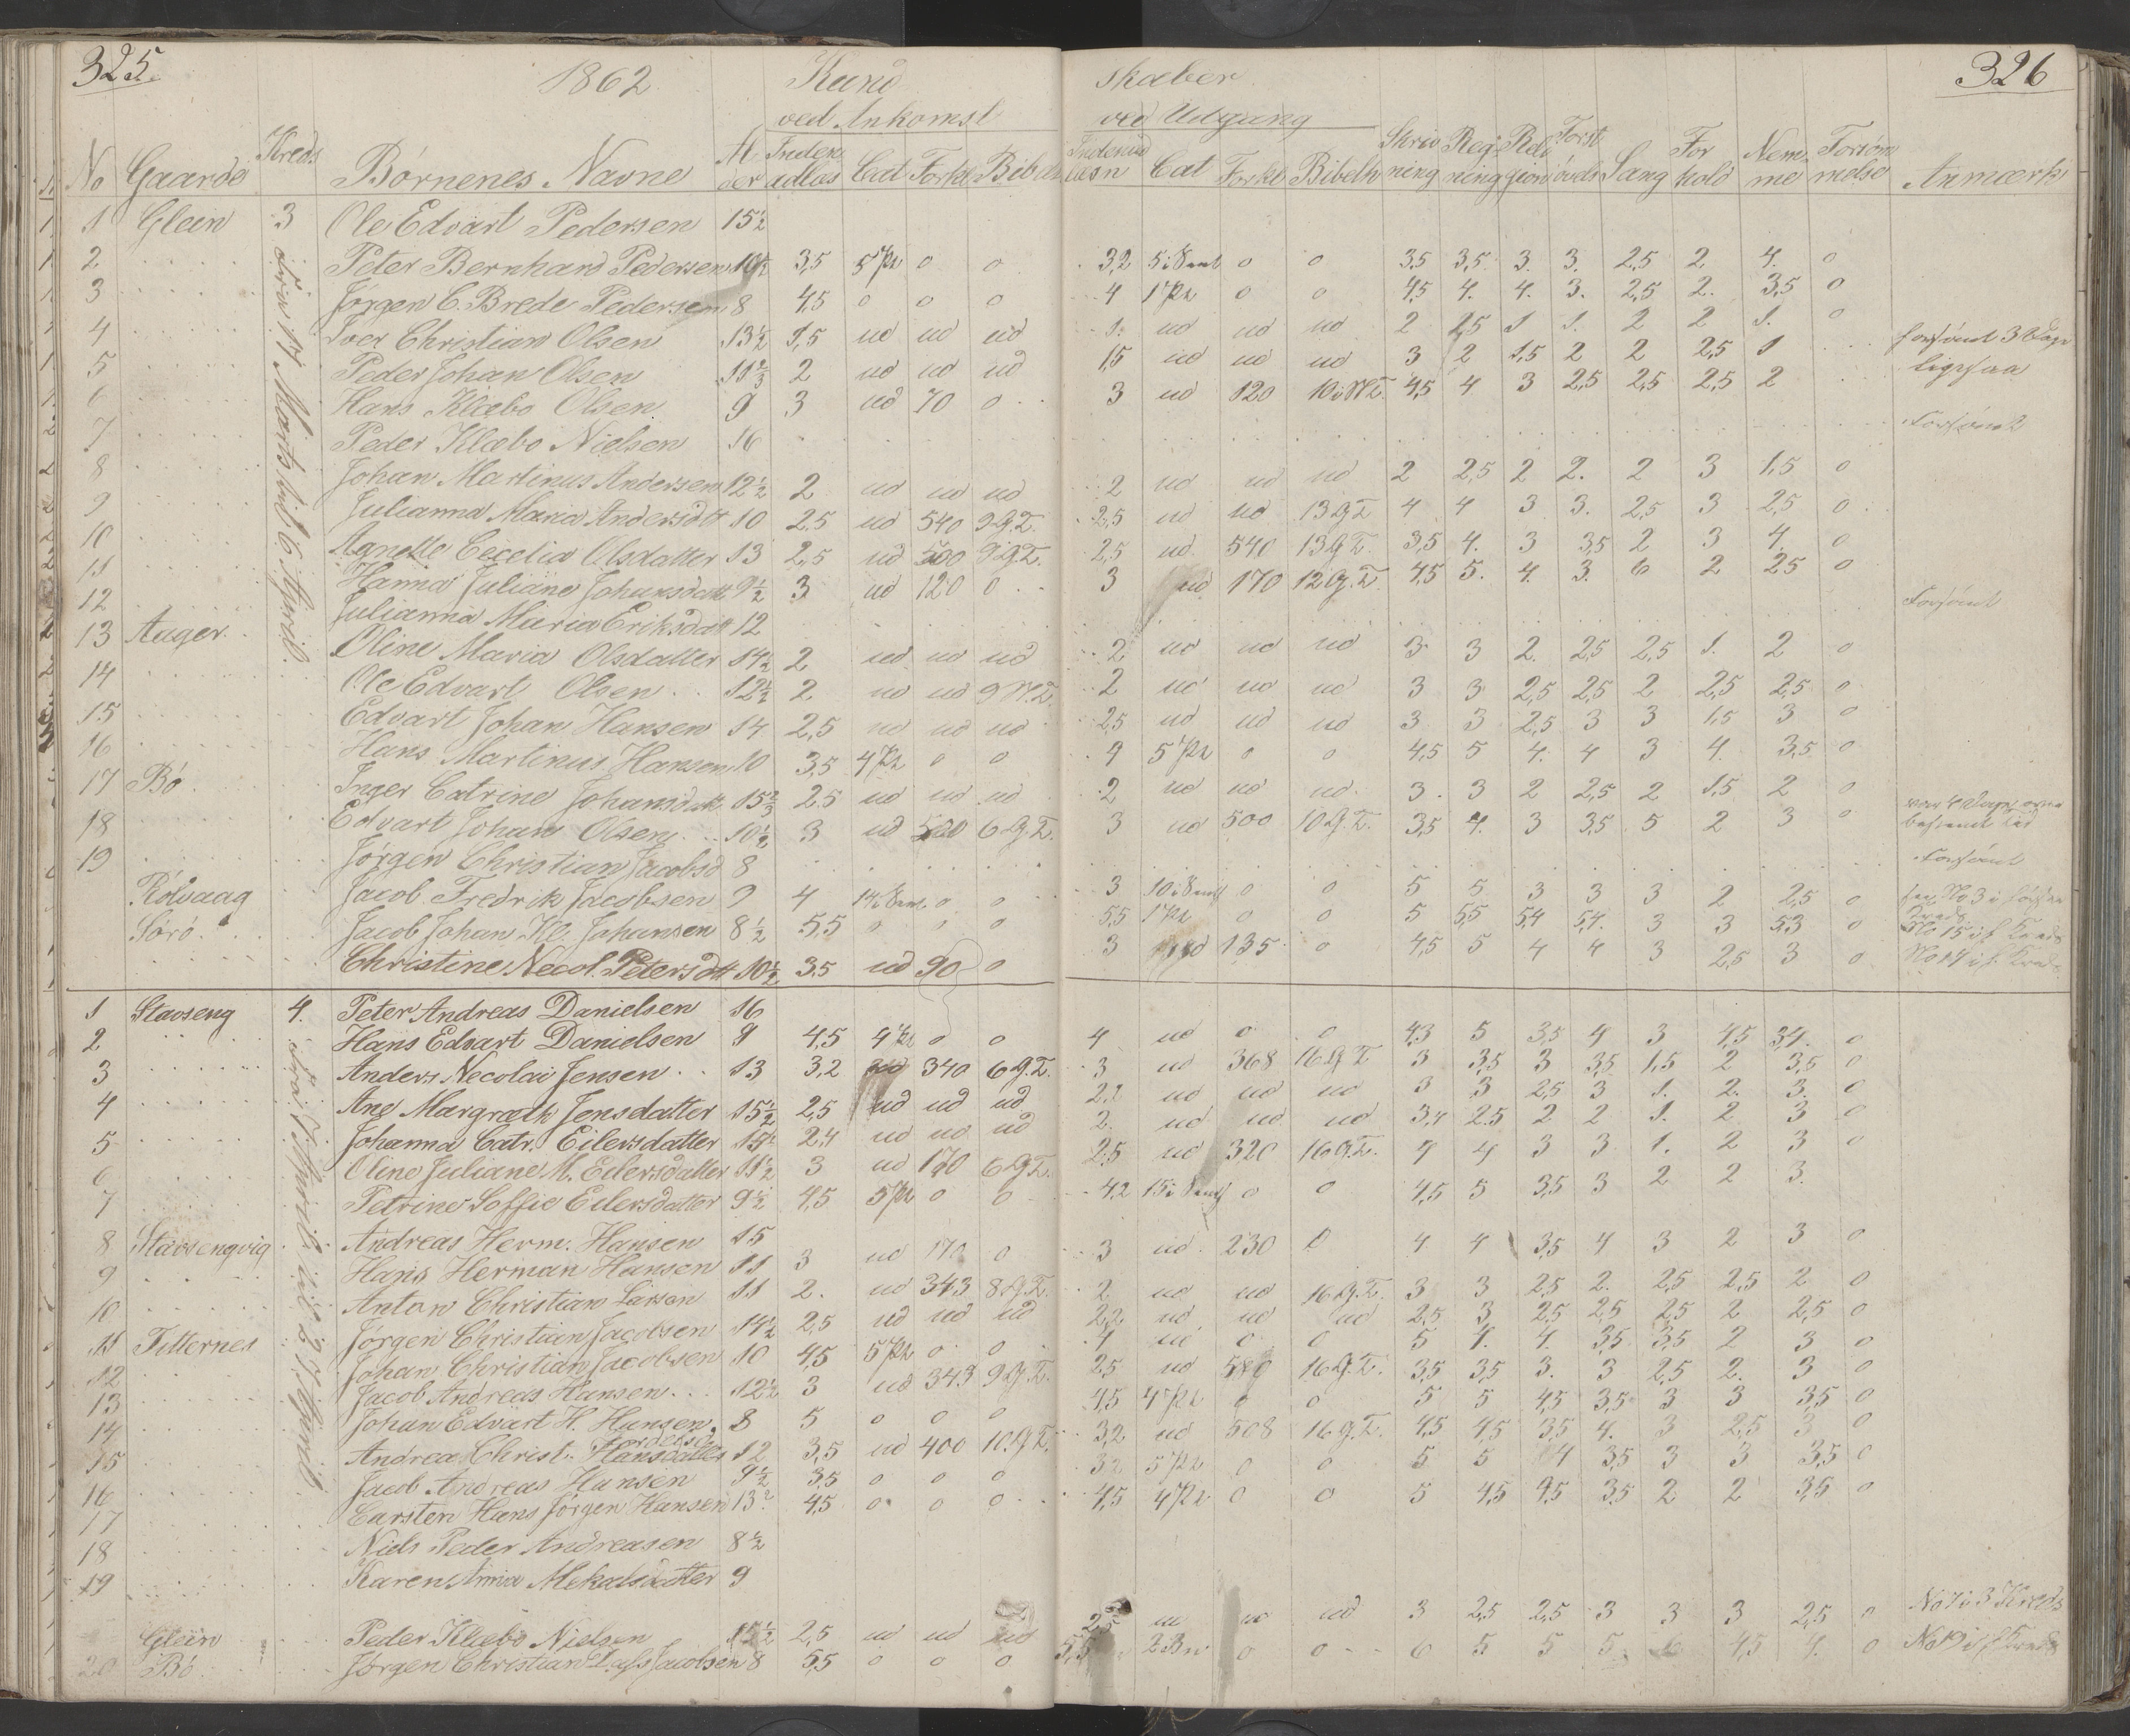 325
1862
Kund
ved Ankomst
No Gaarde Kreds Børnenes Navne Al der Inden adlæs Cat Forkl Bibelh
1 Glein 3 Ole Edvart Pedersen 15½
2 Peter Bernhard Pedersen 10½ 3,5 5 Pt 0 0
3 Jørgen C. Brede Pedersen 8 4,5 0 0 0
4 Iver Christian Olsen 13½ 1,5 ud ud ud
5 Peder Johan Olsen 11⅔ 2 ud ud ud
6 Hans Klæbo Olsen 9 3 ud 70 0
7 Peder Klæbo Nielsen 16
8 Johan Martinus Andersen 12½ 2 ud ud ud
9 Julianna Maria Andersdtt 10 2,5 ud 540 9 G.T.
10 Agnette Cecelia Olsdatter 13 2,5 ud 500 9 G.T.
11 Hanna Juliane Johansdatt 9½ 3 ud 120 0
12 Julianna Maria Eriksdatt 12
13 Aager Oline Maria Olsdatter 14½ 2 ud ud ud
14 Ole Edvart Olsen 12½ 2 ud ud 9 N.T.
15 Edvart Johan Hansen 14 2,5 ud ud ud
16 Hans Martinus Hansen 10 3,5 4 Pt 0 0
17 Bø Inger Catrine Johansdatt 15⅔ 2,5 ud ud ud
18 Edvart Johan Olsen 10½ 3 ud 500 6 G.T.
19 Jørgen Christian Jacobsd 8
Rølvaag Jacob Fredrik Jacobsen 9 4 14 i Sant 0 0
Sørø Jacob Johan Kl. Johansen 8½ 5,5 0 0 0
Christine Necol. Petersdtt 10½ 3,5 ud 90 0
Fra 17 Marts til 6 April
1 Stavseng 4. Peter Andreas Danielsen 16
2 Hans Edvart Danielsen 9 4,5 4 Pt 0 0
3 Anders Necolai Jensen 13 3,2 ud 340 6 G.T.
4 Ane Margreth Jensdatter 15½ 2,5 ud ud ud
5 Johanna Catr. Eilersdatter 15½ 2,4 ud ud ud
6 Oline Juliane M. Eilersdatter 11½ 3 ud 170 6 G.T.
7 Petrine Soffie Eilersdatter 9½ 4,5 5 Pt 0 0
8 Stavsengvig Andreas Herm. Hansen 15
9 Hans Herman Hansen 11 3 ud 170 0
10 Anton Christian Larsen 11 2. ud 343 8 G.T.
11 Titternes Jørgen Christian Jacobsen 14½ 2,5 ud ud ud
12 Johan Christian Jacobsen 10 4,5 5 Pt 0 0
13 Jacob Andreas Hansen 12½ 3 ud 343 9 G.T.
14 Johan Edvart H. Hansen 8 5 0 0 0
15 Andrea Christ. Hansdatter 12 3,5 ud 400 10 G.T.
16 Jacob Andreas Hansen 9½ 3,5 0 0 0
17 Carsten Hans Jørgen Hansen 13 4,5 0 0 0
18 Niels Peder Andreasen 8½
19 Karen Anna Mekalsdatter 9
Glein Peder Klæbo Nielsen 15½ 2,5 ud ud ud
20 Bø Jørgen Christian Jacobsen 8 5,5 0 0 0
326
skaber
ved Udgang
Indenad læsn Cat Forkl Bibelh Skriv ning Reg ning Reli gion Forst ands Sang For hold Nem me Forsøm melse Anmærk
3,2 5 i Sant 0 0 3,5 3,5 3. 3. 2,5 2 4. 0
4 1 Pt 0 0 4,5 4. 4. 3. 2,5 2. 3,5 0
1. ud ud ud 2 2,5 1 1. 2 2 1. 0
1,5 ud ud ud 3 2 1,5 2 2 2,5 1 forsømt 3 Dage
3 ud 120 10 i N.T. 4,5 4 3 2,5 2,5 2,5 2 ligesaa
Forsømt
2 ud ud ud 2 2,5 2 2. 2 3 1,5 0
2,5 ud ud 13 G.T. 4 4 3 3. 2,5 3 2,5 0
2,5 ud 540 13 G.T. 3,5 4. 3 3,5 2 3 4. 0
3 ud 170 12 G.T. 4,5 5. 4. 3. 6 2 2,5 0
Forsømt
2 ud ud ud 3 3 2. 2,5 2,5 1. 2 0
2 ud ud ud 3 3 2,5 2,5 2 2,5 2,5 0
2,5 ud ud ud 3 3 2,5 3 3 1,5 3 0
4 5 Pt 0 0 4,5 5 4. 4 3 4. 3,5 0
2 ud ud ud 3. 3 2 2,5 2 1,5 2 0
3 ud 500 10 G.T. 3,5 4. 3 3,5 5 2 3 0
Forsømt
3 10 i Sant 0 0 5 5 3 3 3 2 2,5 0
5,5 1 Pt 0 0 5 5,5 5,4 5,4. 3 3 5,3 0
3 ud 135 0 4,5 5 4 4 3 2,5 3 0
4 ud 0 0 4,3 5 3,5 4 3 4,5 3,4. 0
3 ud 368 16 G.T. 3 3,5 3 3,5 1,5 2 3,5 0
2,2 ud ud ud 3 3 2,5 3 1. 2. 3. 0
2. ud ud ud 3,4 2.5 2 2 1. 2 3 0
2,5 ud 320 16 G.T. 4 4 3 3 1. 2 3 0
4,2 15 i Sant 0 0 4,5 5 3,5 3 2 2 3.
3 ud 230 0 4 4 3,5 4 3 2 3 0
2 ud ud 16 G.T. 3 3 2,5 2. 2,5 2,5 2 0
2,2 ud ud ud 2,5 3 2,5 2,5 2,5 2 2,5 0
4 ud 0 0 5 4. 4. 3,5 3,5 2 3 0
2,5 ud 580 16 G.T. 3,5 3,5 3. 3 2,5 2. 3 0
4,5 4 Pt 0 0 5 5 4,5 3,5 3 3 3,5 0
3,2 ud 508 16 G.T. 4,5 4,5 3,5 4. 3 2,5 3 0
3,2 5 Pt 0 0 5 5 4 3,5 3 3 3,5 0
4,5 4 Pt 0 0 5 4,5 4,5 3,5 2 2 3,5 0
2,5 ud ud ud 3 2,5 2,5 3 3 3 2,5 0 No 7 i 3 Kreds
5,5 0 0 6 5 5 5 6 4,5 4. 0